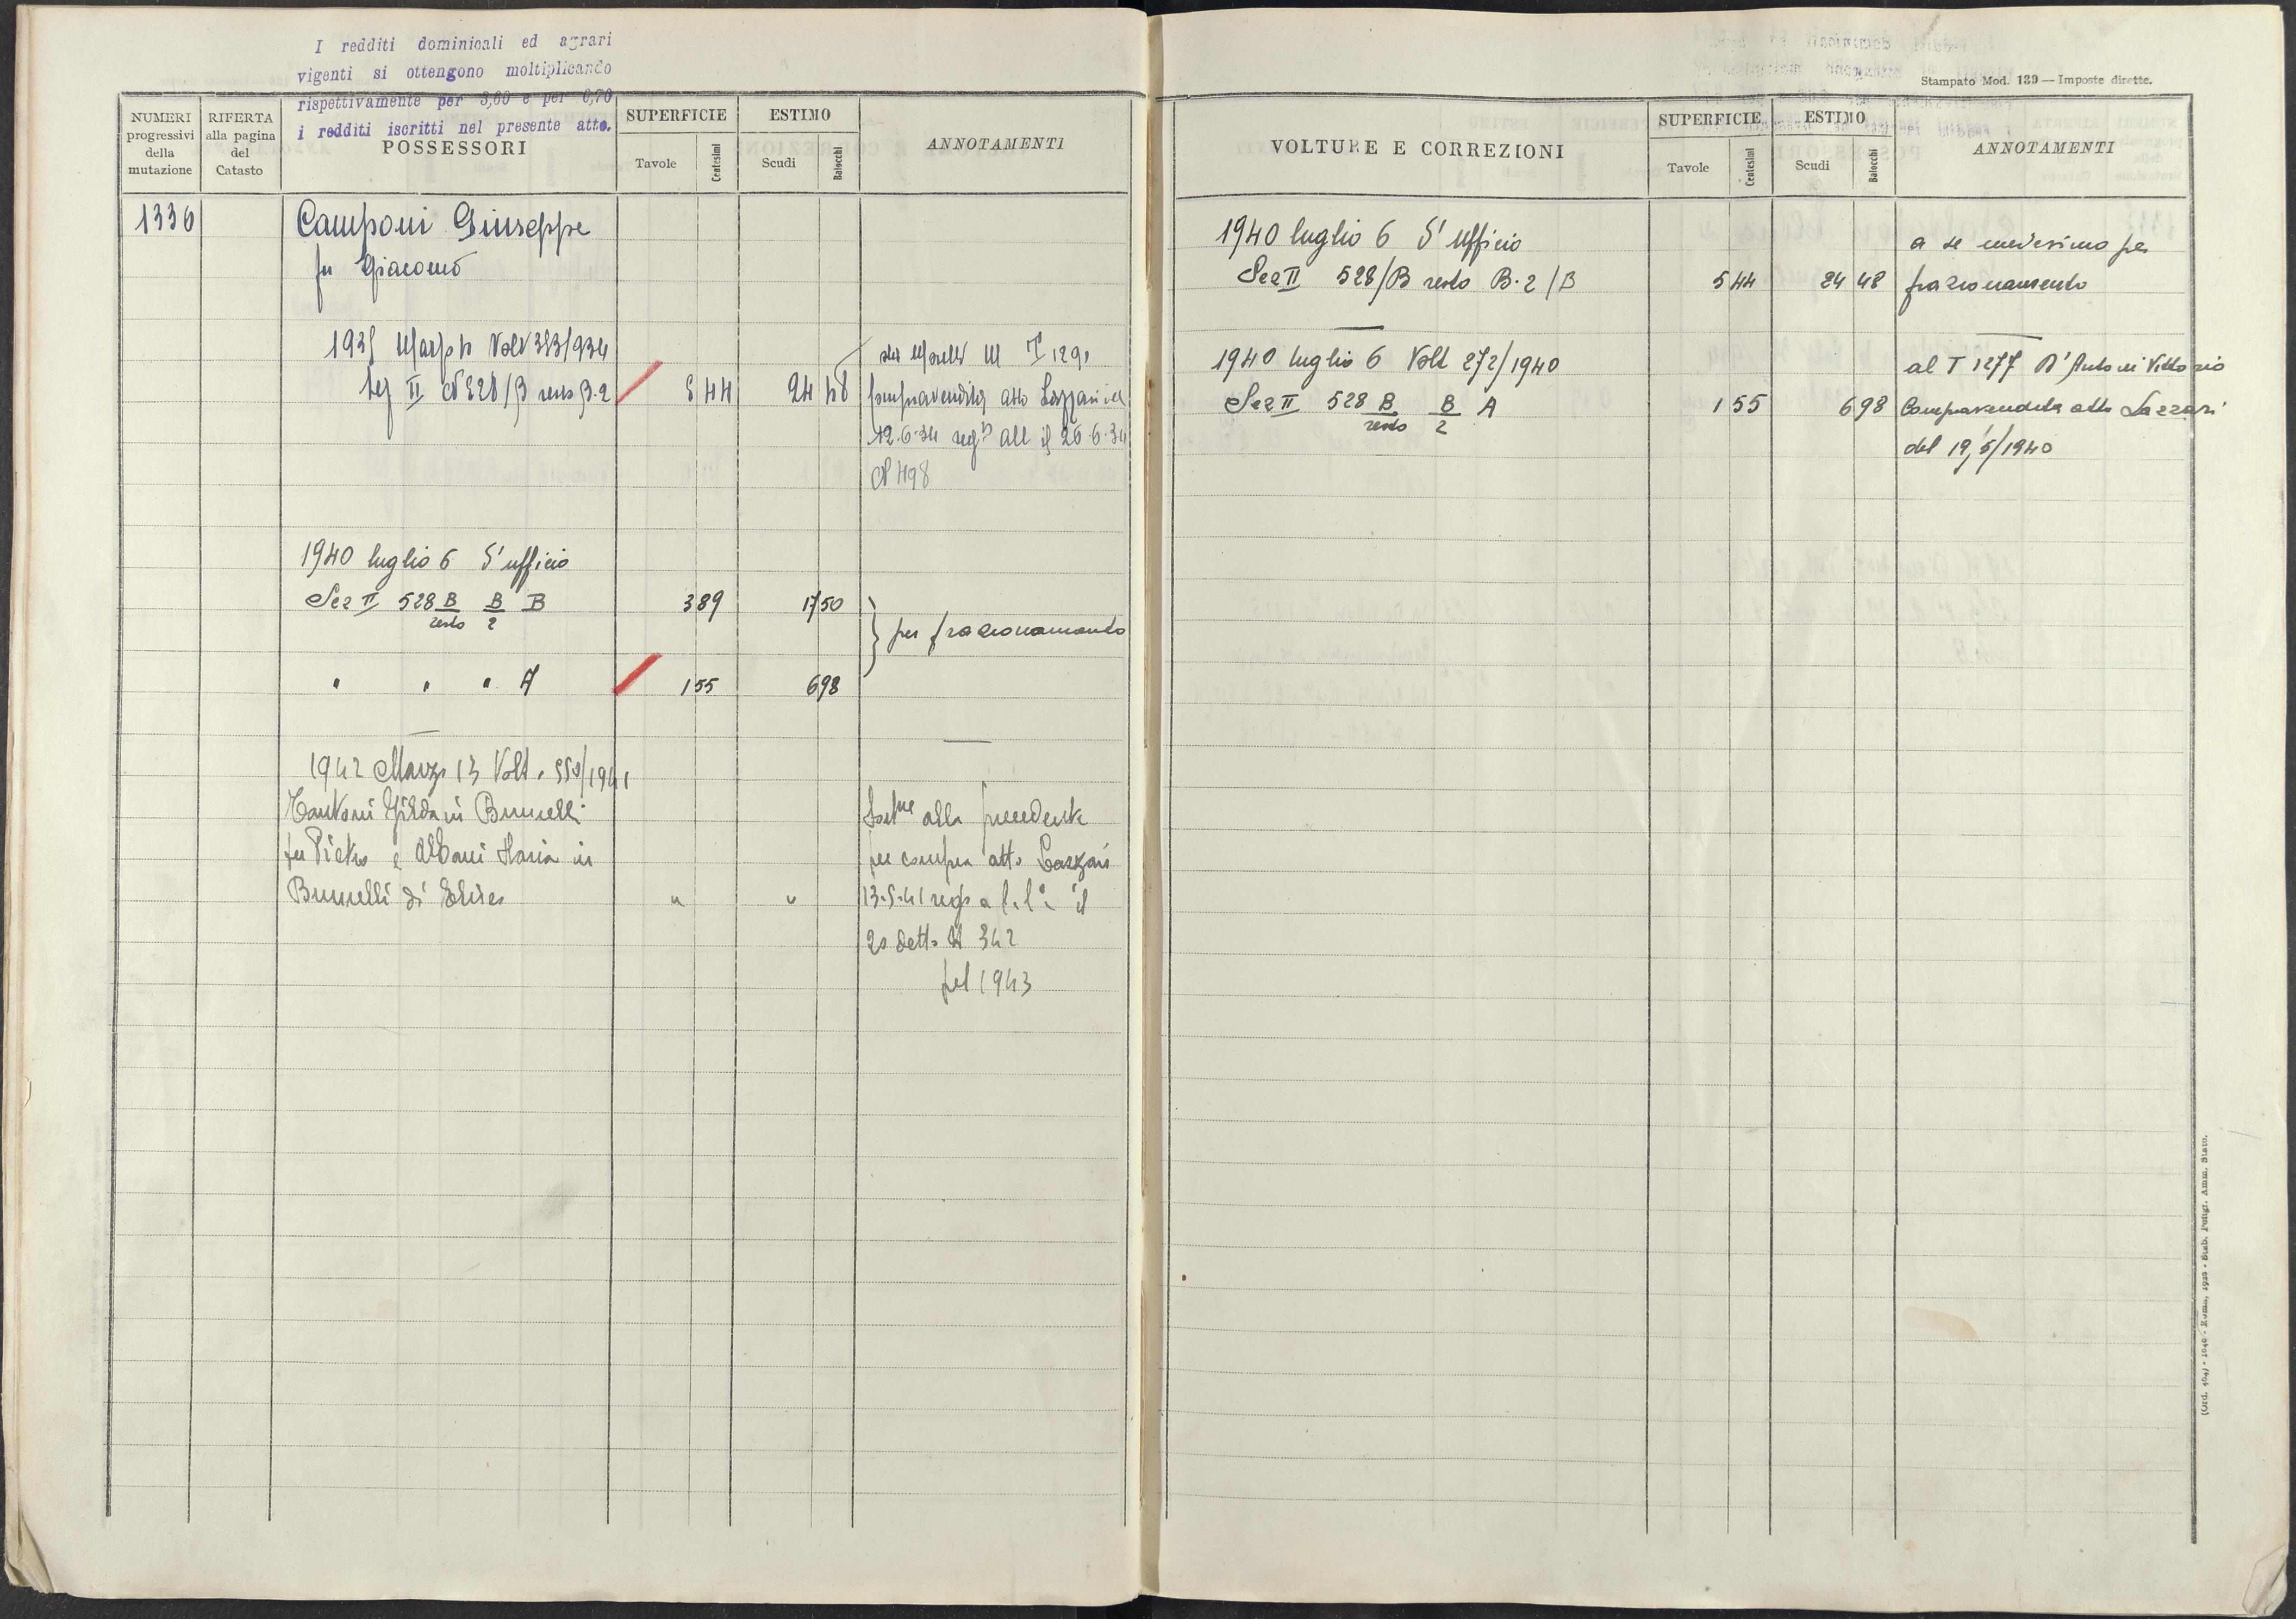 I redditi dominicali ed agrari
vigenti si ottengono moltiplicando
rispettivamente per 3,60 e per 6,70
i redditi iscritti nel presente atto.
NUMERI progressivi della mutazione
RIFERTA alla pagina del Catasto
POSSESSORI
SUPERFICIE
Tavole
Centesimi
ESTIMO
Scudi
Baiocchi
ANNOTAMENTI
1336
Camponi Giuseppe
fu Giacomo
1935 Volt 383/934
II N 528/B resto B.2 5 44 24 48
T 1291
compravendita atto Lazzari del
12.6.34 reg° all il 26.6.34
N 498
1940 luglio 6 D'ufficio
Sez II 528 B/resto B/2 B 3 89 17 50
per frazionamento
" " " A 1 55 6 98
1942 Marzo 13 Volt. /1941
Gilda in Brunelli
fu Pietro e Albani Maria in
Brunelli di " "
alla precedente
per compra atto Lazzari
13.5.41 reg° a il
20 detto N 342
pel 1943
Stampato Mod. 139 — Imposte dirette.
VOLTURE E CORREZIONI
SUPERFICIE
Tavole
Centesimi
ESTIMO
Scudi
Baiocchi
ANNOTAMENTI
1940 luglio 6 D'ufficio a se medesimo per
Sez II 528/B resto B.2/B 5 44 24 48 frazionamento
1940 luglio 6 Volt 272/1940 al T 1277 D'Antoni Vittorio
Sez II 528 B/resto B/2 A 1 55 6 98 Compravendita atto Lazzari
del 19/5/1940
(Ord. 404) - 1040 - Roma, 1933 - Stab. Poligr. Amm. Stato.